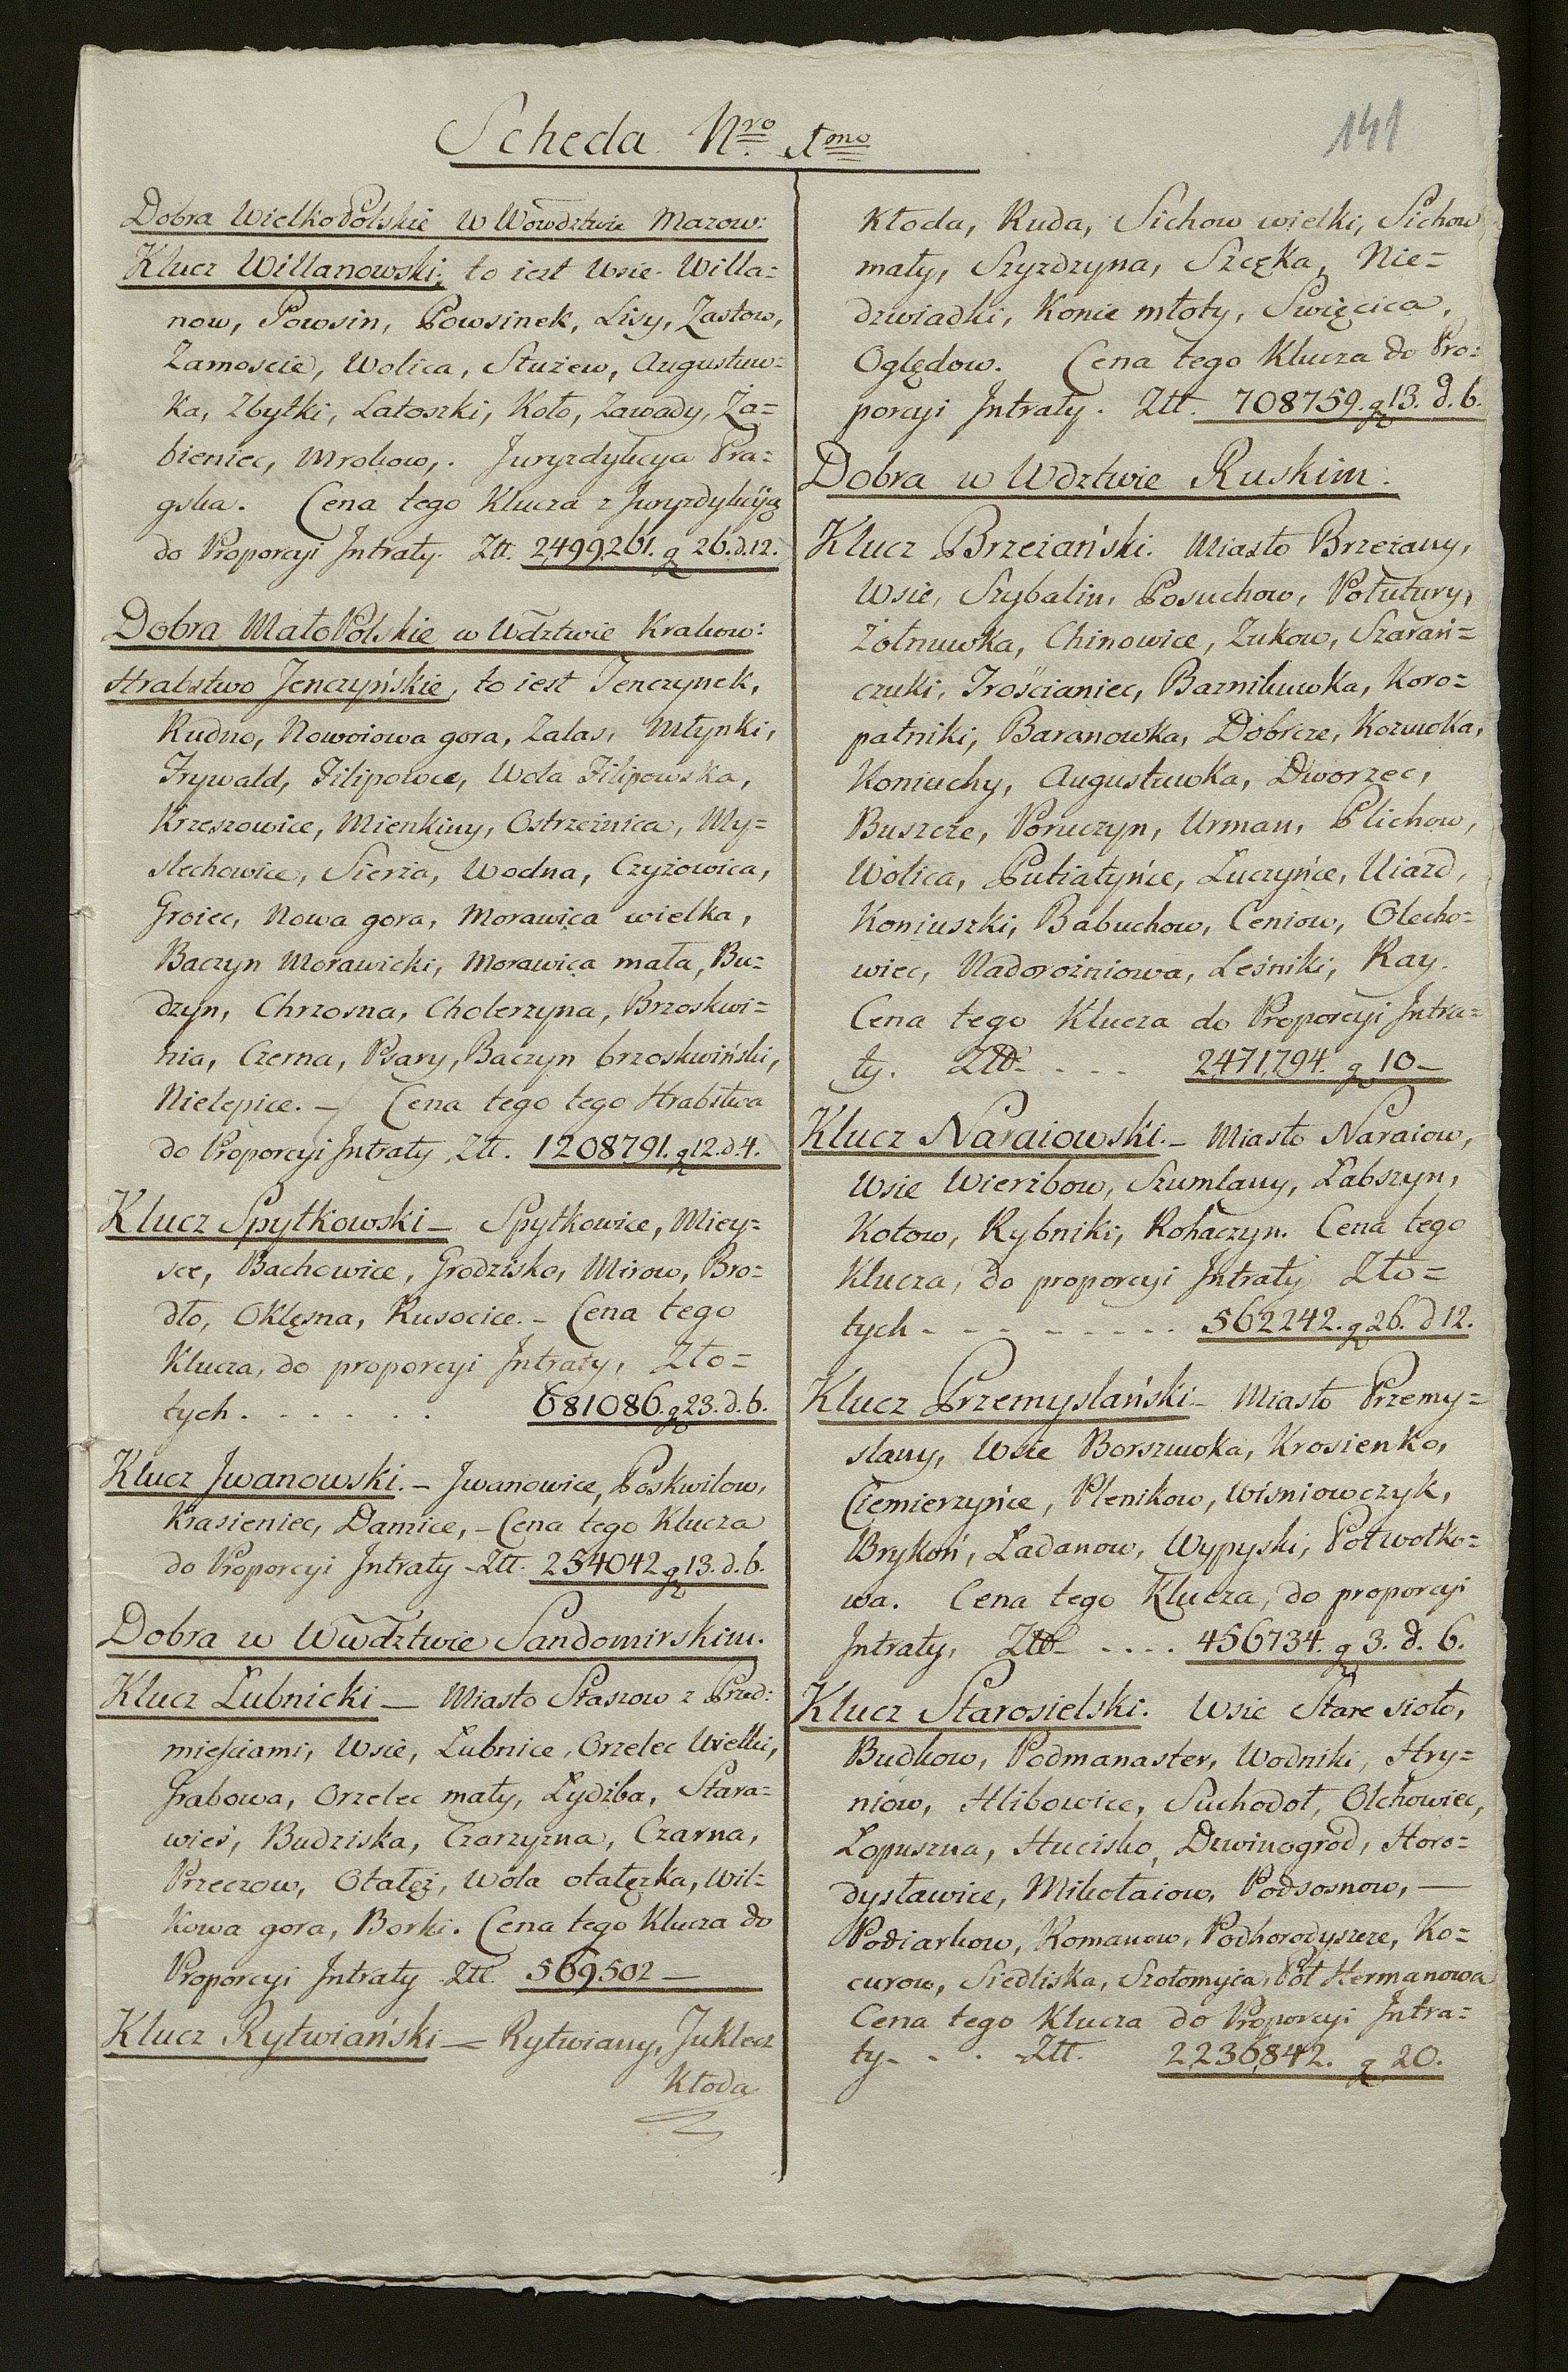 Scheda Nro 1mo
141
Dobra WielkoPolskie w Wowdztwie Mazow:
Klucz Willanowski; to iest Wsie Willa=
now, Powsin, Powsinek, Lisy, Zastow,
Zamoscie, Wolica, Stużew, Augustuw=
ka, Zbytki, Latoszki, Koło, Zawady, Ża=
bieniec, Mrokow,. Juryzdykcya Pra=
gska. Cena tego Klucza z Juryzdykcyą
do Proporcyi Intraty. Ztt. 2,499,261. g 26. d. 12.
Dobra MałoPolskie w Wdztwie Krakow:
Hrabstwo Jenczyńskie, to iest Tenczynek,
Rudno, Nowoiowa gora, Zalas, Młynki,
Frywald, Filipowce, Wola Filipowska,
Krzeszowice, Mienkiny, Ostrzeżnica, My=
slechowice, Siersza, Wodna, Czyżowica,
Groiec, Nowa gora, Morawica wielka,
Baczyn Morawicki, Morawica mała, Bu=
dzyn, Chrzosna, Cholerzyna, Brzoskwi=
nia, Czerna, Psary, Baczyn brzoskwiński,
Nielepice. – Cena tego tego Hrabstwa
do Proporcyi Intraty Ztt. 1208791. g 12. d. 4.
Klucz Spytkowski – Spytkowice, Miey=
sce, Bachowice, Grodzisko, Mirow, Bro=
dło, Oklęsna, Rusocice. – Cena tego
Klucza, do proporcyi Intraty, Zło=
tych . . . . . . 681086. g 23. d. 6.
Klucz Jwanowski. – Jwanowice, Poskwilow,
Krasieniec, Damice, – Cena tego Klucza
do Proporcyi Intraty – Ztt. 254042 g 13. d. 6.
Dobra w Wwdztwie Sandomirskim.
Klucz Łubnicki – Miasto Staszow z Przed:
mieściami, Wsie, Łubnice, Orzelec Wielki,
Grabowa, Orzelec mały, Łydzba, Stara=
wieś, Budziska, Czarzyzna, Czarna,
Przeczow, Otałęż, Wola otałęzka, Wil=
kowa gora, Borki. Cena tego Klucza do
Proporcyi Intraty Ztt. 569,502 –
Klucz Rytwiański – Rytwiany, Juklecz
Kłoda
Kłoda, Ruda, Sichow wielki, Sichow
mały, Szyzdzyna, Szczęka, Nie=
dzwiadki, Konie młoty, Swięcica,
Oględow. Cena tego Klucza do Pro=
porcyi Intraty. Ztt. 708759. g 13. d. 6.
Dobra w Wdztwie Ruskim.
Klucz Brzeżański. Miasto Brzeżany,
Wsie, Szybalin, Posuchow, Potutury,
Żołnuwka, Chinowice, Żukow, Szarań=
czuki, Trościaniec, Baznikuwka, Koro=
patniki, Baranowka, Dobrcze, Kozuwka,
Koniuchy, Augustuwka, Dworzec,
Buszcze, Poruczyn, Urman, Plichow,
Wolica, Putiatyńce, Łuczyńce, Uiazd,
Koniuszki, Babuchow, Ceniow, Olecho=
wiec, Nadorożniowa, Leśniki, Ray.
Cena tego Klucza do Proporcyi Intra=
ty. Ztt – . . – 2,471,794. g 10 –
Klucz Naraiowski. – Miasto Naraiow,
Wsie Wierzbow, Szumlany, Łabszyn,
Kotow, Rybniki, Rohaczyn. Cena tego
Klucza, do proporcyi Intraty Zło=
tych – – – – – . . . 562242. g 26. d 12.
Klucz Przemyslański – Miasto Przemy=
slany, Wsie Borszuwka, Krosienko,
Ciemierzyńce, Plenikow, Wiśniowczyk,
Brykoń, Ładanow, Wypyski, Połwołko=
wa. Cena tego Klucza, do proporcyi
Intraty, Ztt – . . . . 456734. g 3. d. 6.
Klucz Starosielski. Wsie Stare sioło,
Budkow, Podmanaster, Wodniki, Hry=
niow, Hlibowice, Suchodoł, Olchowiec,
Łopuszna, Hucisko, Dzwinogrod, Horo=
dysławice, Mikołaiow, Podsosnow, –
Podiarkow, Romanow, Podhorodyszcze, Ko=
curow, Siedliska, Szołomyia, Poł Hermanowa
Cena tego Klucza do Proporcyi Intra=
ty – – . – Ztt. 2,236,842. g 20.